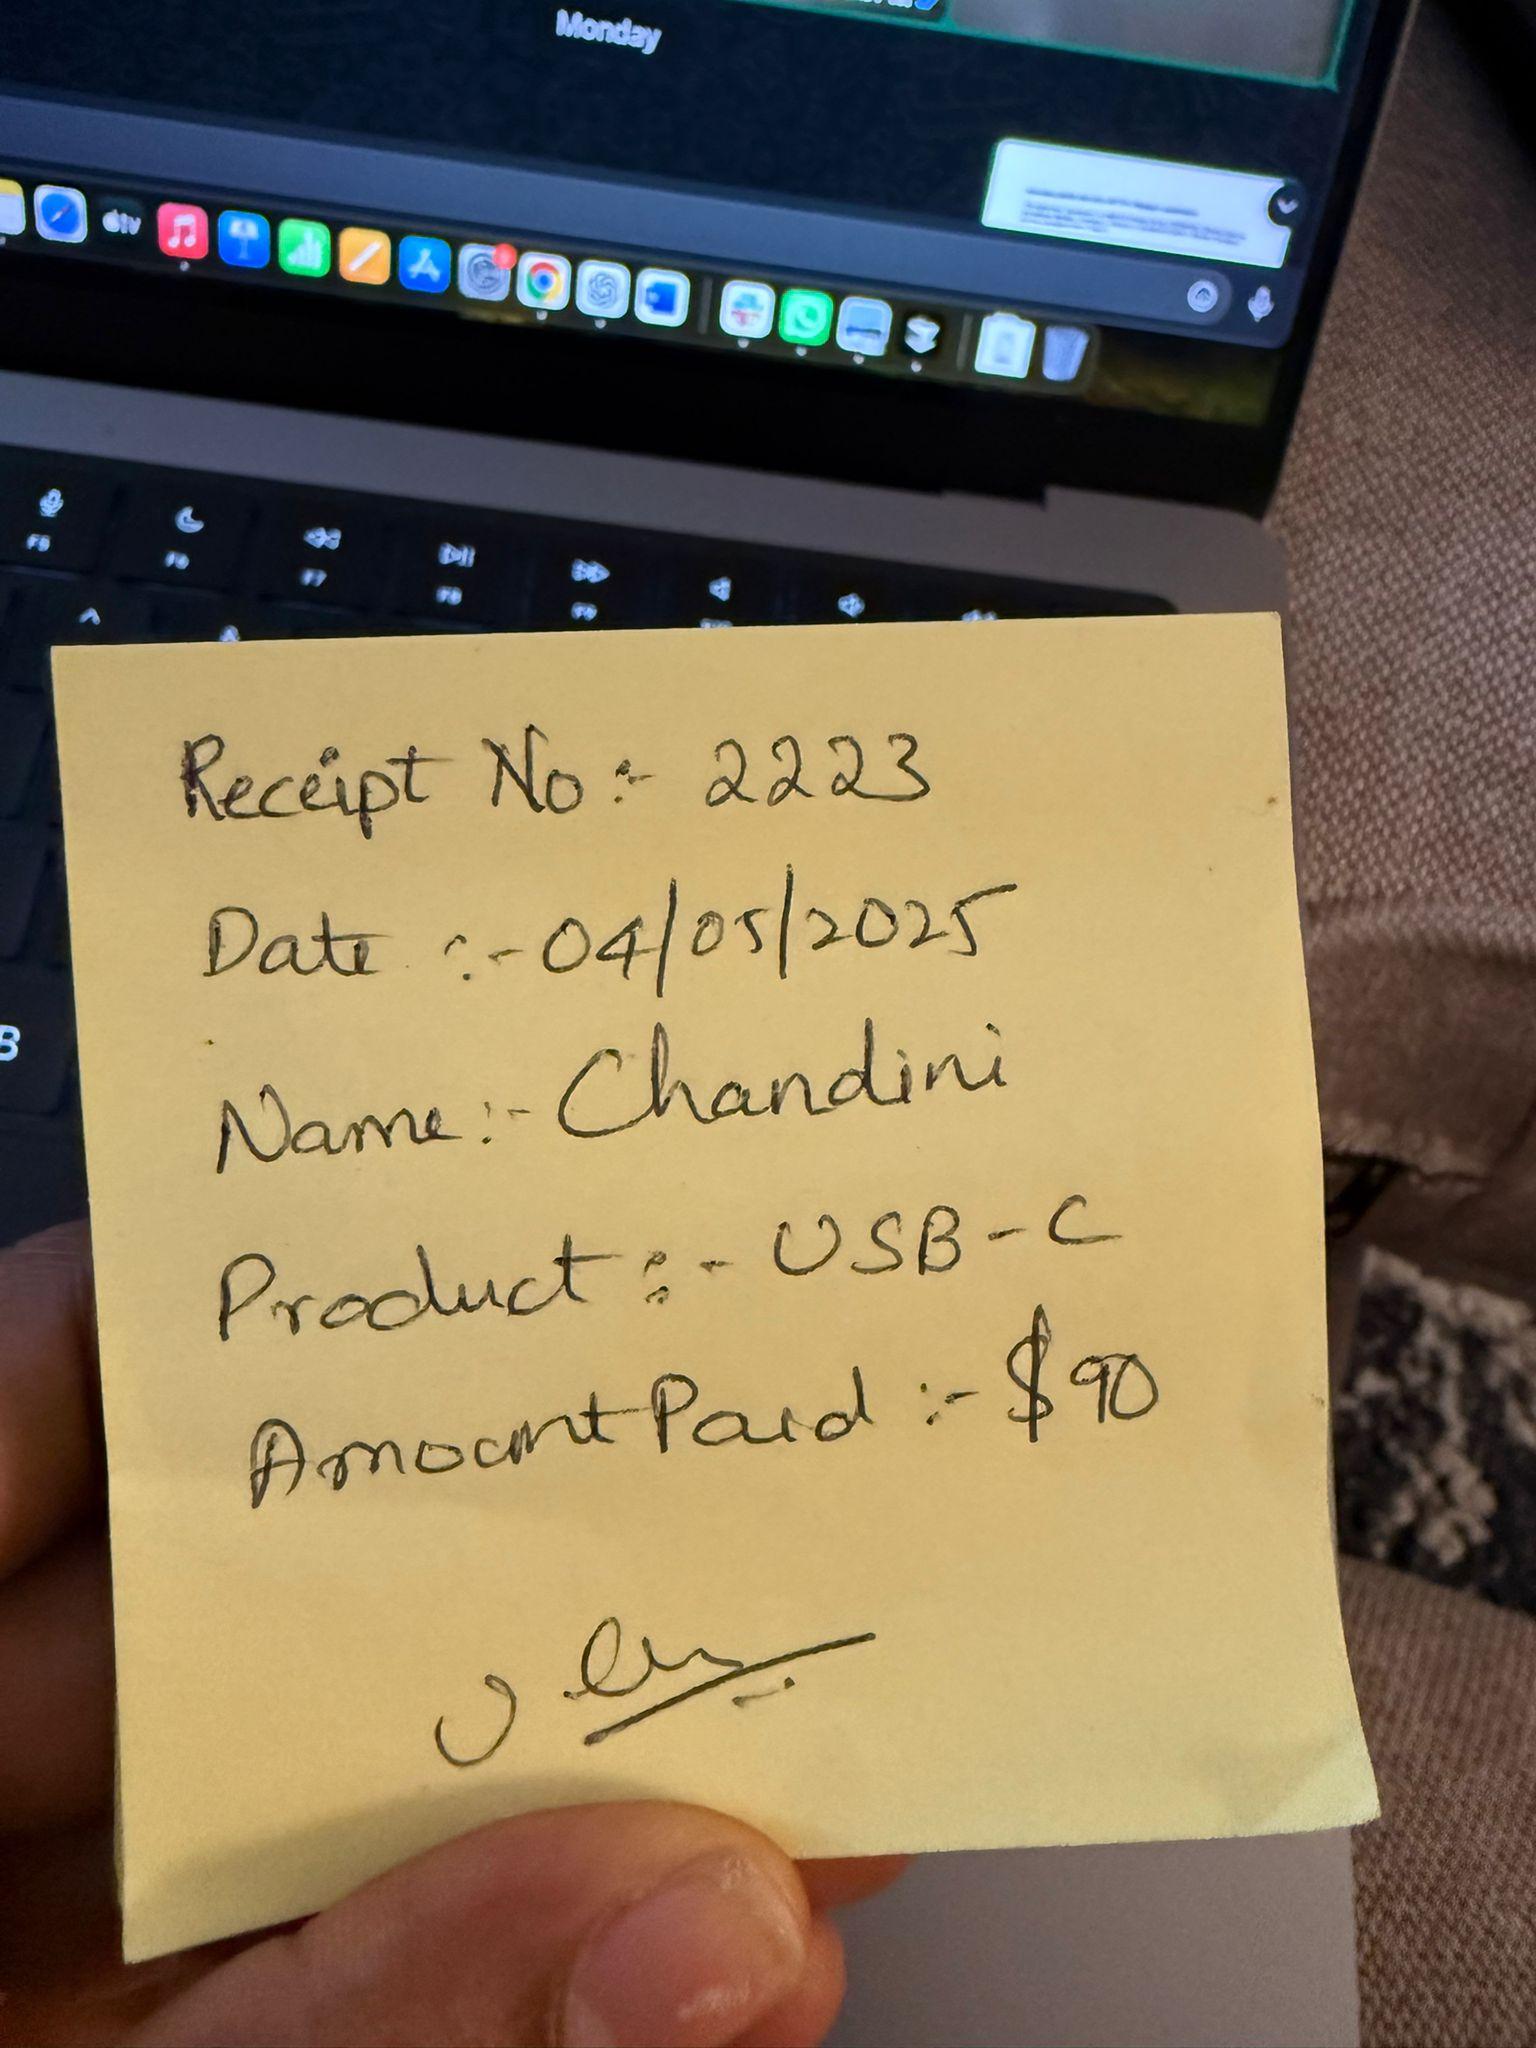 Monday
tv
F5
F6
F7
F8
F9
B
Receipt No :- 2223
Date :- 04/05/2025
Name :- Chandini
Product :- USB-C
Amount Paid :- $90